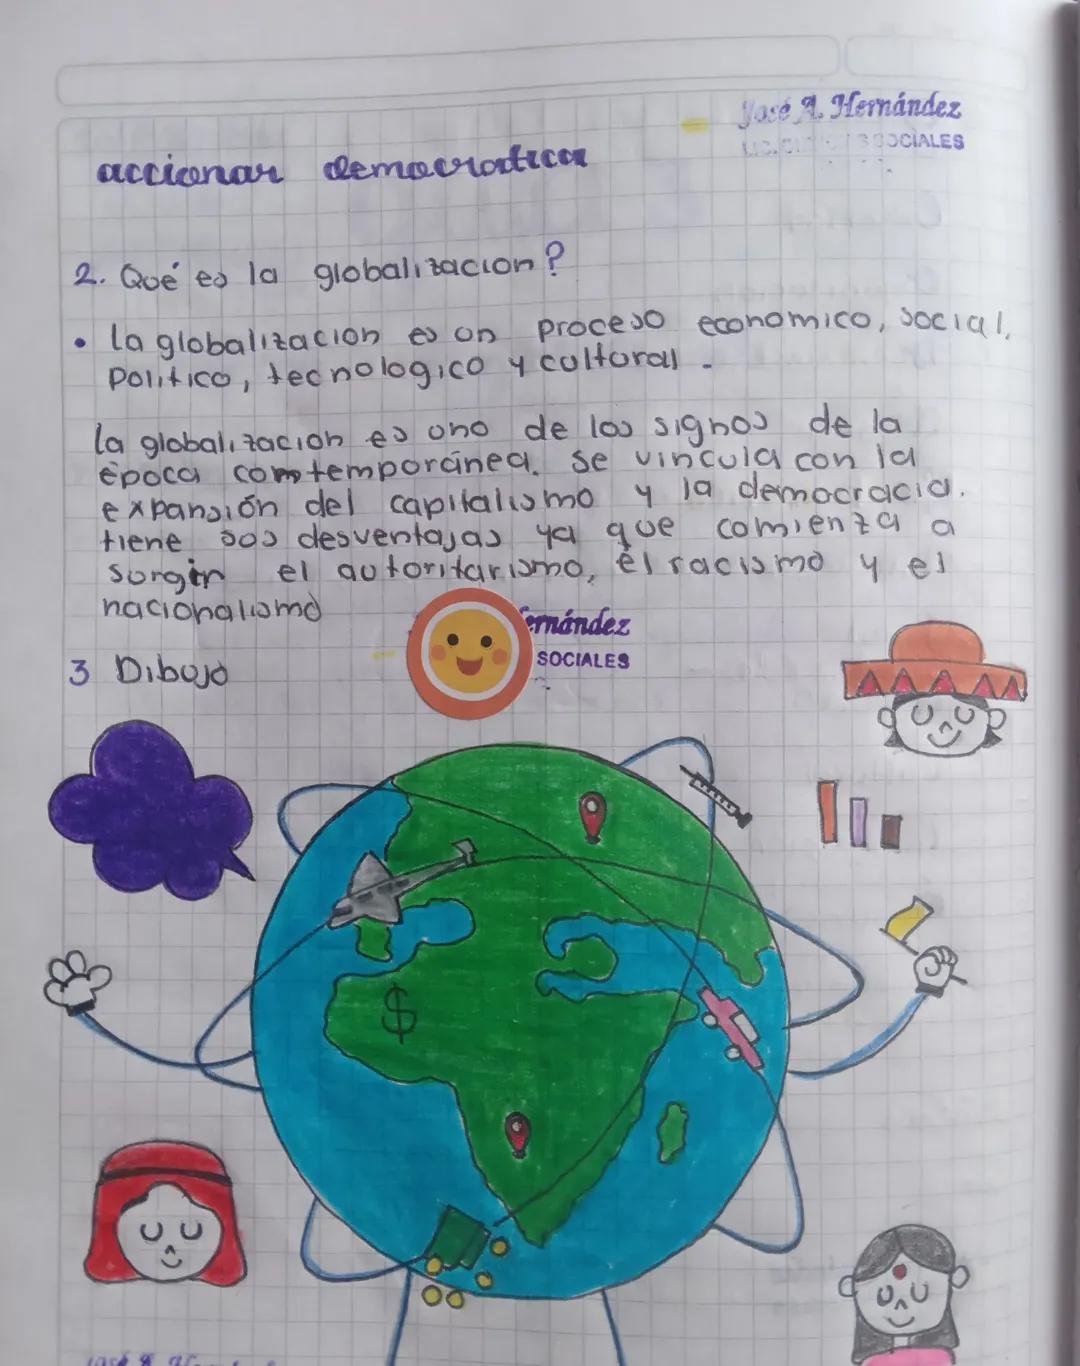 José A. Hernández
SOCIALES
accionar democratica
2. Qué es la globalizacion?
• la globalizacion es un proceso economico, social,
politico, tecnologico y cultural.
la globalizacion es uno de los signos de la
epoca comtemporánea. se vincula con la
expansión del capitalismo y la democracia.
tiene sus desventajas ya que comienza a
surgin el autoritarismo, el racismo y el
nacionalismo
ernández
SOCIALES
3 Dibujo
$